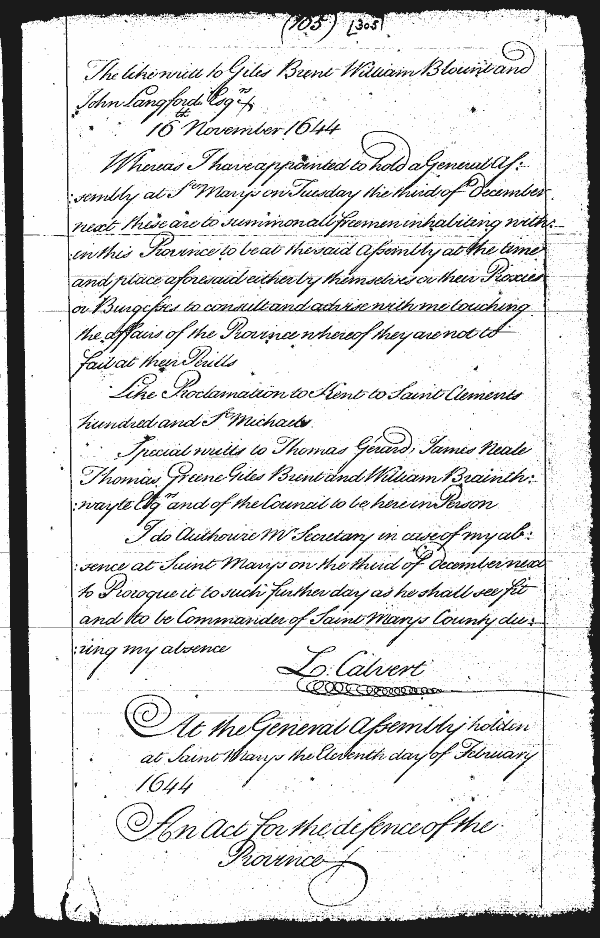 (105) [305]
The like writt to Giles Brent William Blount and
John Langford Esqrs
16th November 1644
Whereas I have appointed to hold a General As:
:sembly at St Marys on Tuesday the third of December
next these are to summon all freemen inhabiting with:
in this Province to be at the said Assembly at the time
and place aforesaid either by themselves or their Proxies
or Burgesses to consult and advise with me touching
the affairs of the Province whereof they are not to
fail at their Perills
Like Proclamation to Kent to Saint Clements
hundred and St Michaels
Special writts to Thomas Gerard, James Neale
Thomas Greene Giles Brent and William Brainth:
:wayte Esqrs and of the Council to be here in Person
I do Authorize Mr Secretary in case of my ab:
:sence at Saint Marys on the third of December next
to Prorogue it to such further day as he shall see fit
and to be Commander of Saint Marys County du:
:ring my absence
L. Calvert
At the General Assembly holden
at Saint Marys the Eleventh day of February
1644
An Act for the defence of the
Province